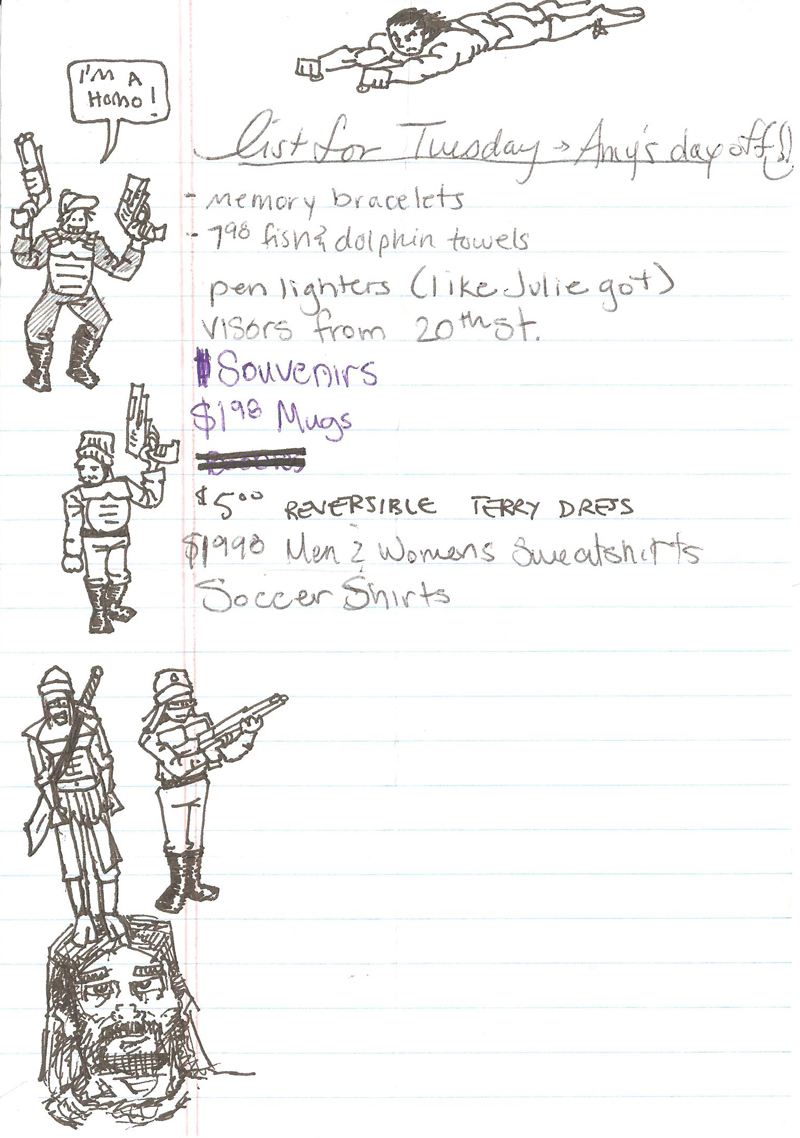 I'M A
Homo!
List for Tuesday → Amy's day off(!)
- memory bracelets
- 7⁹⁸ fish & dolphin towels
pen lighters (like Julie got)
visors from 20th st.
Souvenirs
$1⁹⁸ Mugs
$5⁰⁰ REVERSIBLE TERRY DRESS
$19⁹⁸ Men & Womens Sweatshirts
Soccer Shirts